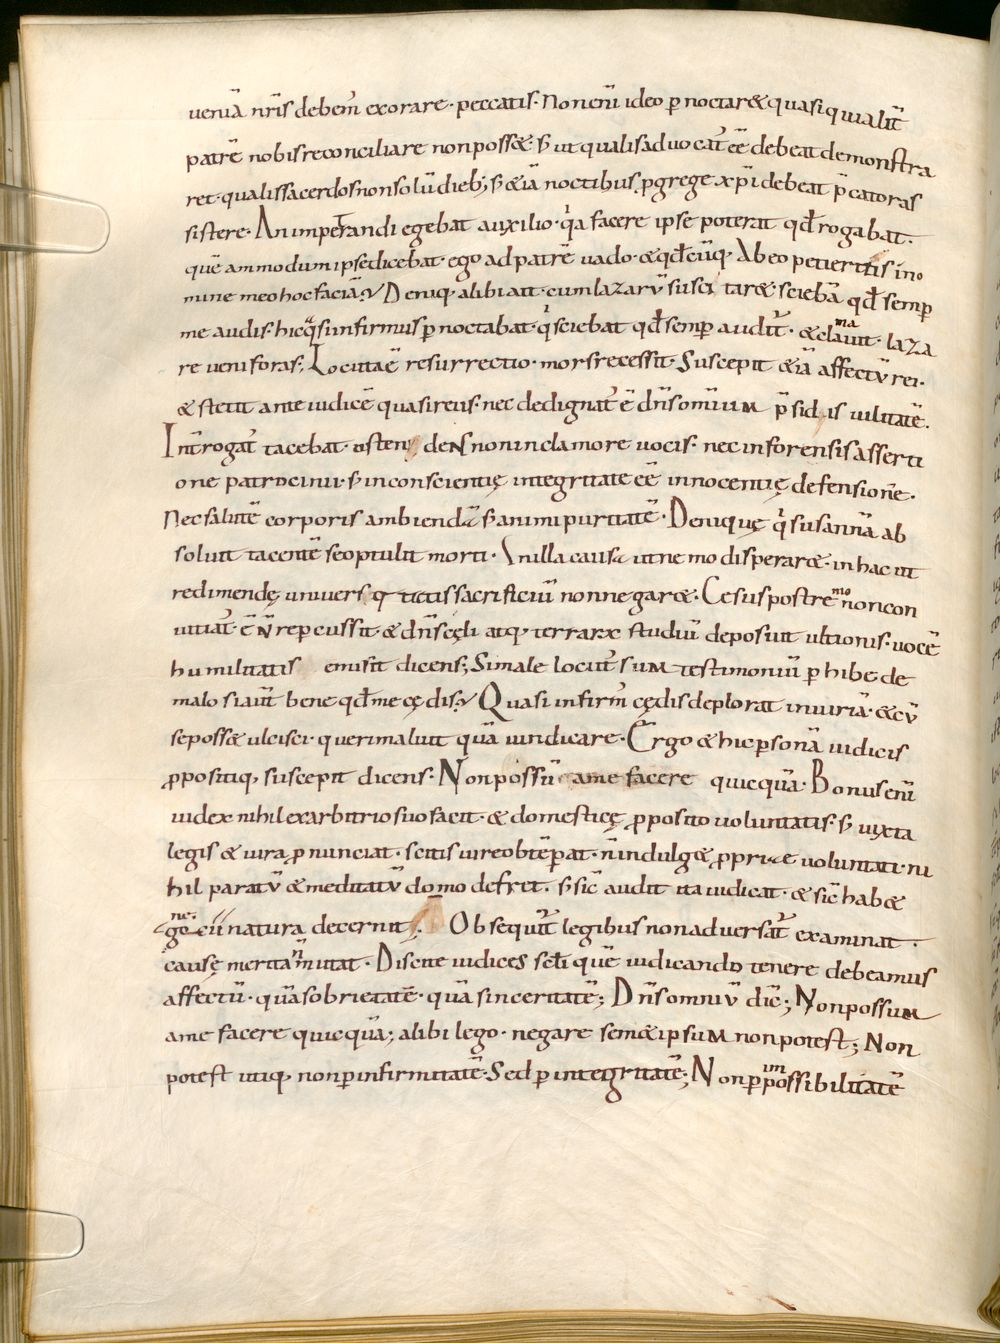 ueniā nr̄is debem̄ exorare· peccatis· Non enī ideo ꝑnoctar& quasi qui alit̄
patrē nobis reconciliare non poss& s; ut qualis aduocat᷑ eē debeat demonstra
ret· qualis sacerdos· non solū dieb; s; &iā noctibus ꝓ grege xp̄i debeat p̄cator as
sistere· An imperandi egebat auxilio· qͥa facere ipse poterat qđ rogabat·
quē ammodum ipse dicebat· ego ad patrē uado· & qđcūq; Ab eo petieritis in no
mine meo hoc faciā; Deniq; alibi ait· cum lazarū suscitar& sciebā qđ semꝑ
me audis· hic q̄si infirmus ꝑnoctabat· qͥ sciebat qđ semꝑ audit᷑· & clamauit· laza
re ueni foras; Locuta ē resurrectio· mors recessit· Suscepit &iā affectū rei·
& stetit ante iudicē quasi reus· nec dedignat᷑ ē dn̄s omium p̄sidis uilitatē·
Int̄rogat᷑ tacebat· ostendens non in clamore uocis· nec in forensis asserti
one patrocinii· s; in conscientię integritate eē innocentię defensionē·
Nec salutē corporis ambiendā s; animi puritatē· Deniquę qͥ susannā ab
soluit tacentē se optulit morti· In illa causa ut nemo disperar&· in hac ut
redimendę uniuersitatis sacrificiū non negar&· Cesus postremo non con
uitiat᷑ ē N̄ repercussit· & dn̄s sc̄li atq; terrarum studiū deposuit ultionis· uocē
humilitatis emisit dicens; Si male locut᷑ sum testimoniū ꝑhibe de
malo si aut̄ bene qđ me cędis; Quasi infirm᷑ cędis deplorat iniuriā· & cū
se poss& ulcisci· queri maluit quā uindicare· Ergo & hic ꝑsonā iudicis
ꝓpositiq; suscepit dicens· Non possū a me facere quicquā· Bonus enī
iudex nihil ex arbitrio suo facit· & domesticę ꝓposito uoluntatis· s; iuxta
legis & iura ꝓnunciat· scitis iure obtēꝑat· n̄ indulg& ꝓprię uoluntati· ni
hil paratū & meditatū domo defret· s; sic̄ audit ita iudicat· & sic̄ hab&
negocii natura decernit· Obsequit᷑ legibus non aduersat᷑ examinat·
causę merita n̄ mutat· Discite iudices sc̄li quē iudicando tenere debeamus
affectū· quā sobrietatē· quā sinceritatē; Dn̄s omniū dic̄; Non possum
a me facere quicquā; alibi lego· negare sem&ipsum non potest; Non
potest utiq; non ꝑ infirmitatē· Sed ꝑ integritatē; Non ꝑ impossibilitatē